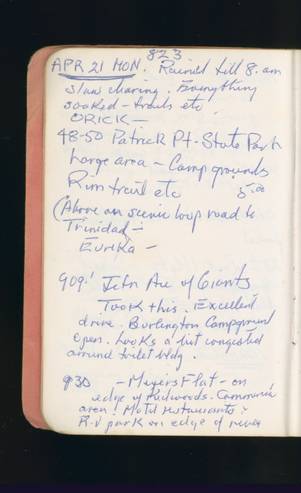 823
APR 21 MON. Rained till 8. am
slow clearing. Everything
soaked - trails etc
ORICK -
48-50 Patrick Pt. State Park
Large area - Campgrounds
Rim trail etc 5.00
(Above on scenic loop road to
Trinidad -
Eureka -
909! Jctn Ave of Giants
Took this. Excellent
drive. Burlington Campground
open. Looks a bit congested
around toilet bldg.
930 - Meyers Flat - on
edge of redwoods. Commercial
area! Motel restaurants &
R-V park on edge of river